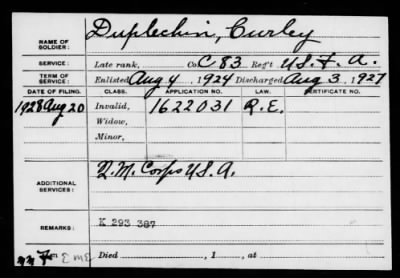 NAME OF SOLDIER: Duplechin, Curley
SERVICE: Late rank, Co. C 83 Reg't U.S. F. A.
TERM OF SERVICE: Enlisted Aug 4, 1924 Discharged Aug 3, 1927
DATE OF FILING. CLASS. APPLICATION NO. LAW. CERTIFICATE NO.
1928 Aug 20 Invalid, 1622031 R.E.
Widow,
Minor,
ADDITIONAL SERVICES: Q.M. Corps U.S.A.
REMARKS: K 293 387
Died , 1 , at